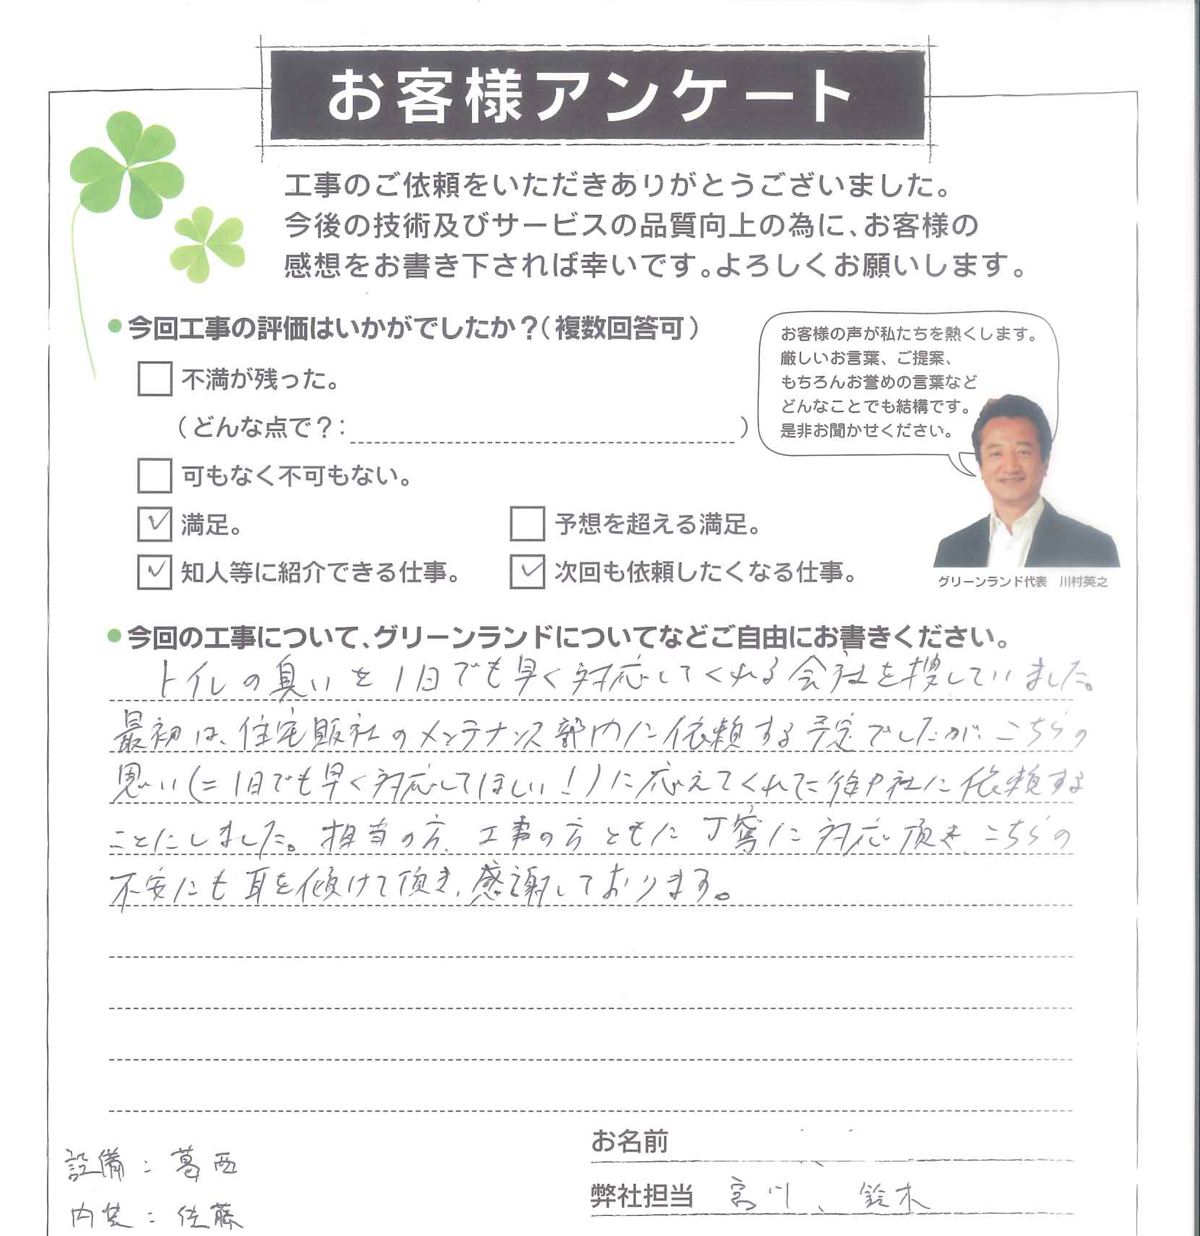 お客様アンケート
工事のご依頼をいただきありがとうございました。
今後の技術及びサービスの品質向上の為に、お客様の
感想をお書き下されば幸いです。よろしくお願いします。
今回工事の評価はいかがでしたか？（複数回答可）
不満が残った。
（どんな点で？：）
可もなく不可もない。
満足。
予想を超える満足。
知人等に紹介できる仕事。
次回も依頼したくなる仕事。
お客様の声が私たちを熱くします。
厳しいお言葉、ご提案、
もちろんお誉めの言葉など
どんなことでも結構です。
是非お聞かせください。
グリーンランド代表 川村英之
今回の工事について、グリーンランドについてなどご自由にお書きください。
トイレの臭いを1日でも早く対応してくれる会社を捜していました。
最初は、住宅販社のメンテナンス部内に依頼する予定でしたが、こちらの
思い(=1日でも早く対応してほしい！)に応えてくれた 社に依頼する
ことにしました。担当の方、工事の方ともに丁寧に対応頂き、こちらの
不安にも耳を傾けて頂き、感謝しております。
お名前
弊社担当 宮川、鈴木
設備：葛西
内装：佐藤